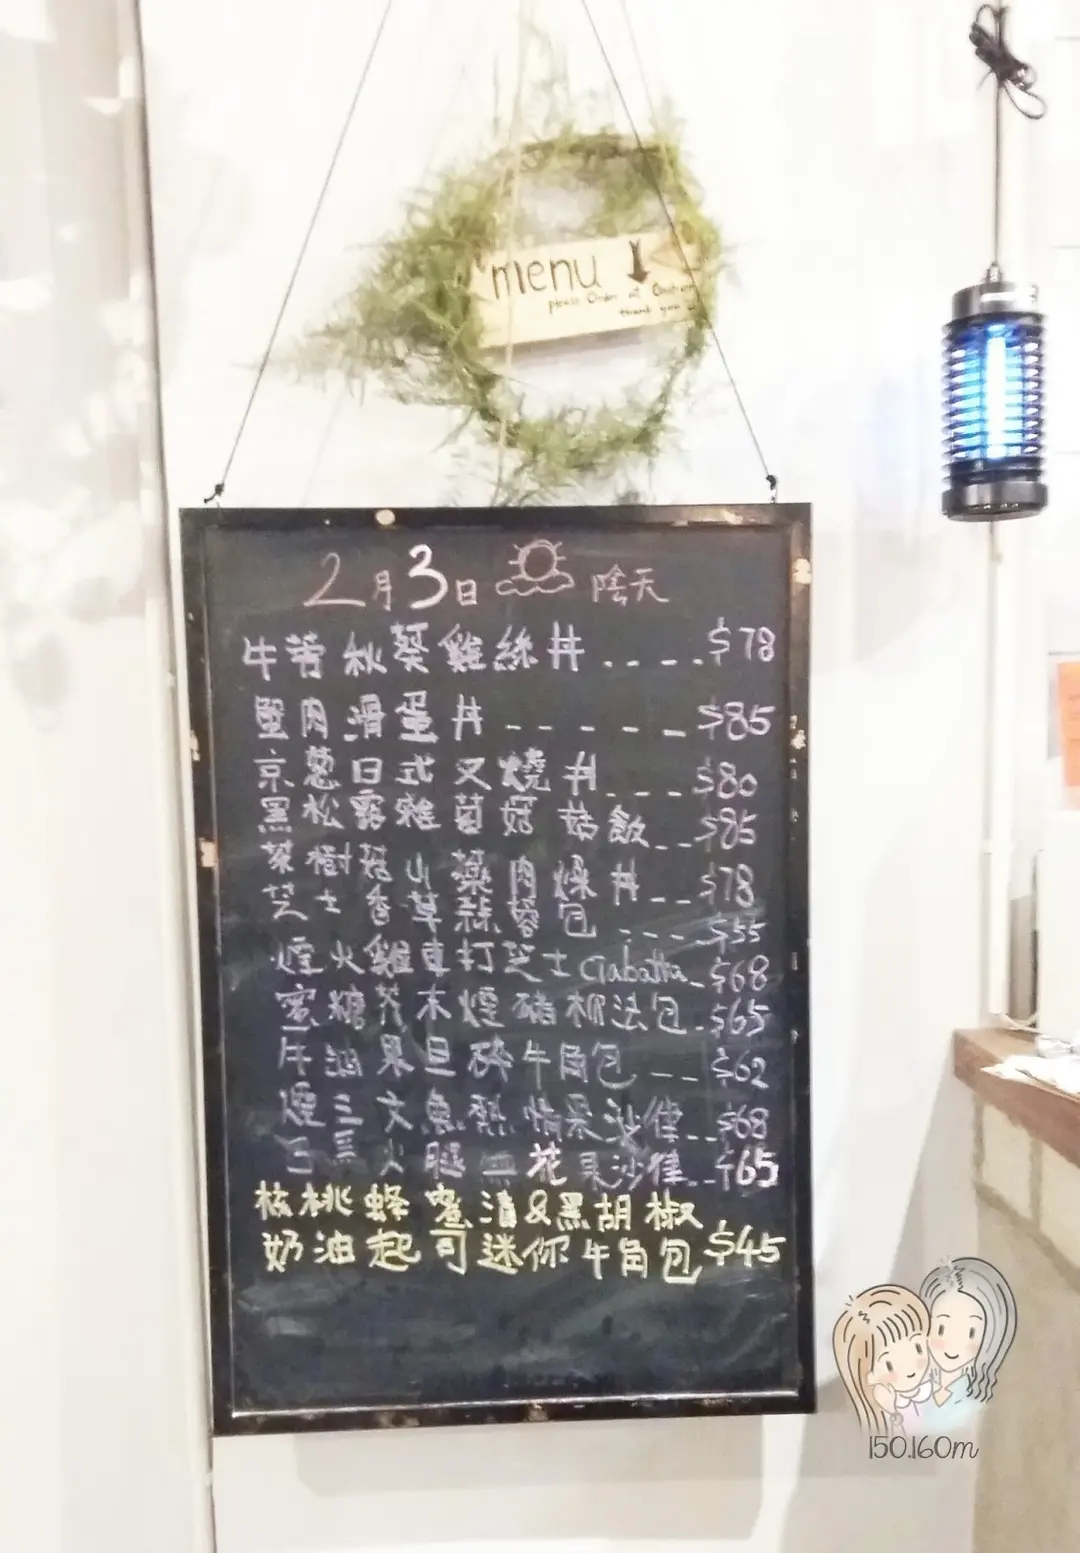 menu
please Order at
thank you
2月3日 陰天
牛蒡秋葵雞絲丼....$78
蟹肉滑蛋丼-----$85
京蔥日式叉燒丼...$80
黑松露雜菌菇菇飯--$85
茶樹菇山藥肉燥丼--$78
芝士香草蒜蓉包---$55
煙火雞車打芝士Ciabatta-$68
蜜糖芥末煙豬柳法包-$65
牛油果旦碎牛角包--$62
煙三文魚熱情果沙律--$68
火腿無花果沙律--$65
核桃蜂蜜漬&黑胡椒
奶油起司迷你牛角包$45
150.160m